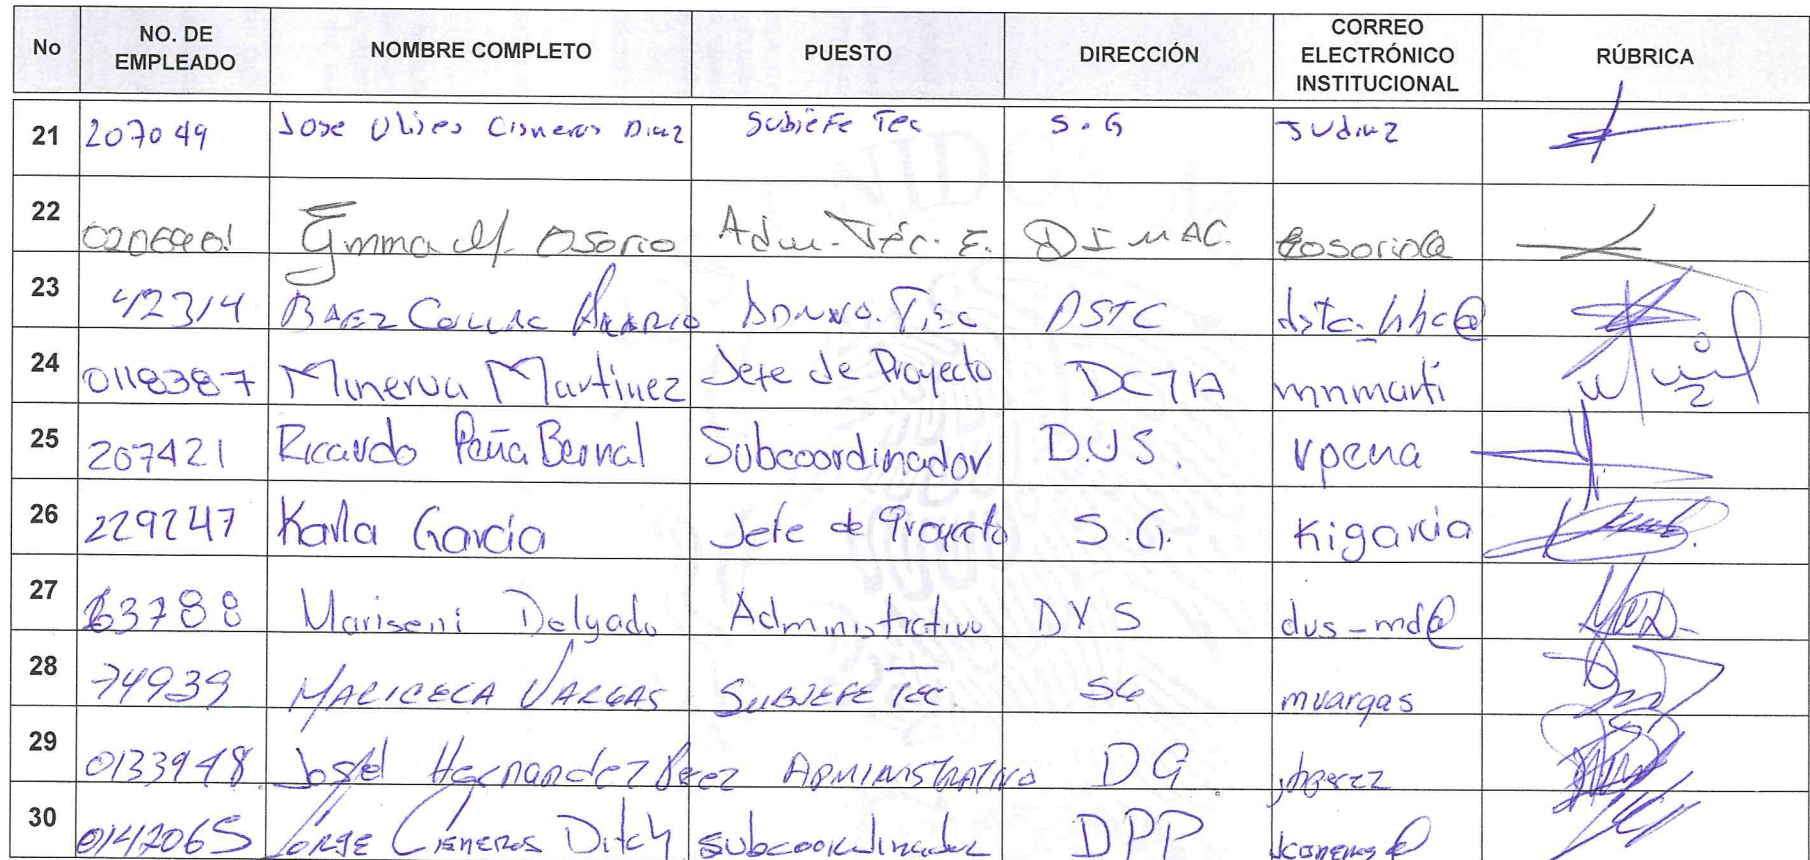 No NO. DE EMPLEADO NOMBRE COMPLETO PUESTO DIRECCIÓN CORREO ELECTRÓNICO INSTITUCIONAL RÚBRICA
21 207049 Jose Ulises Cisneros Diaz Subjefe Tec S.G Judiaz
22 Emma M. Osorio Adm. Téc. E. DIMAC. eosorio@
23 42314 BAEZ DSTC dstc_hhc@
24 0118387 Minerva Martinez Jefe de Proyecto DCTIA mnmarti
25 207421 Ricardo Peña Bernal Subcoordinador D.U.S. rpena
26 229247 Karla García Jefe de Proyecto S.G. Kigarcia
27 63788 Mariseni Delgado Administrativo DVS dvs-md@
28 74939 MARICELA VARGAS SUBJEFE TEC. SG mvargas
29 0133948 Hernandez Perez ADMINISTRATIVO DG jhperez
30 0142065 JORGE CISNEROS Ditch subcoordinador DPP jcisneros@